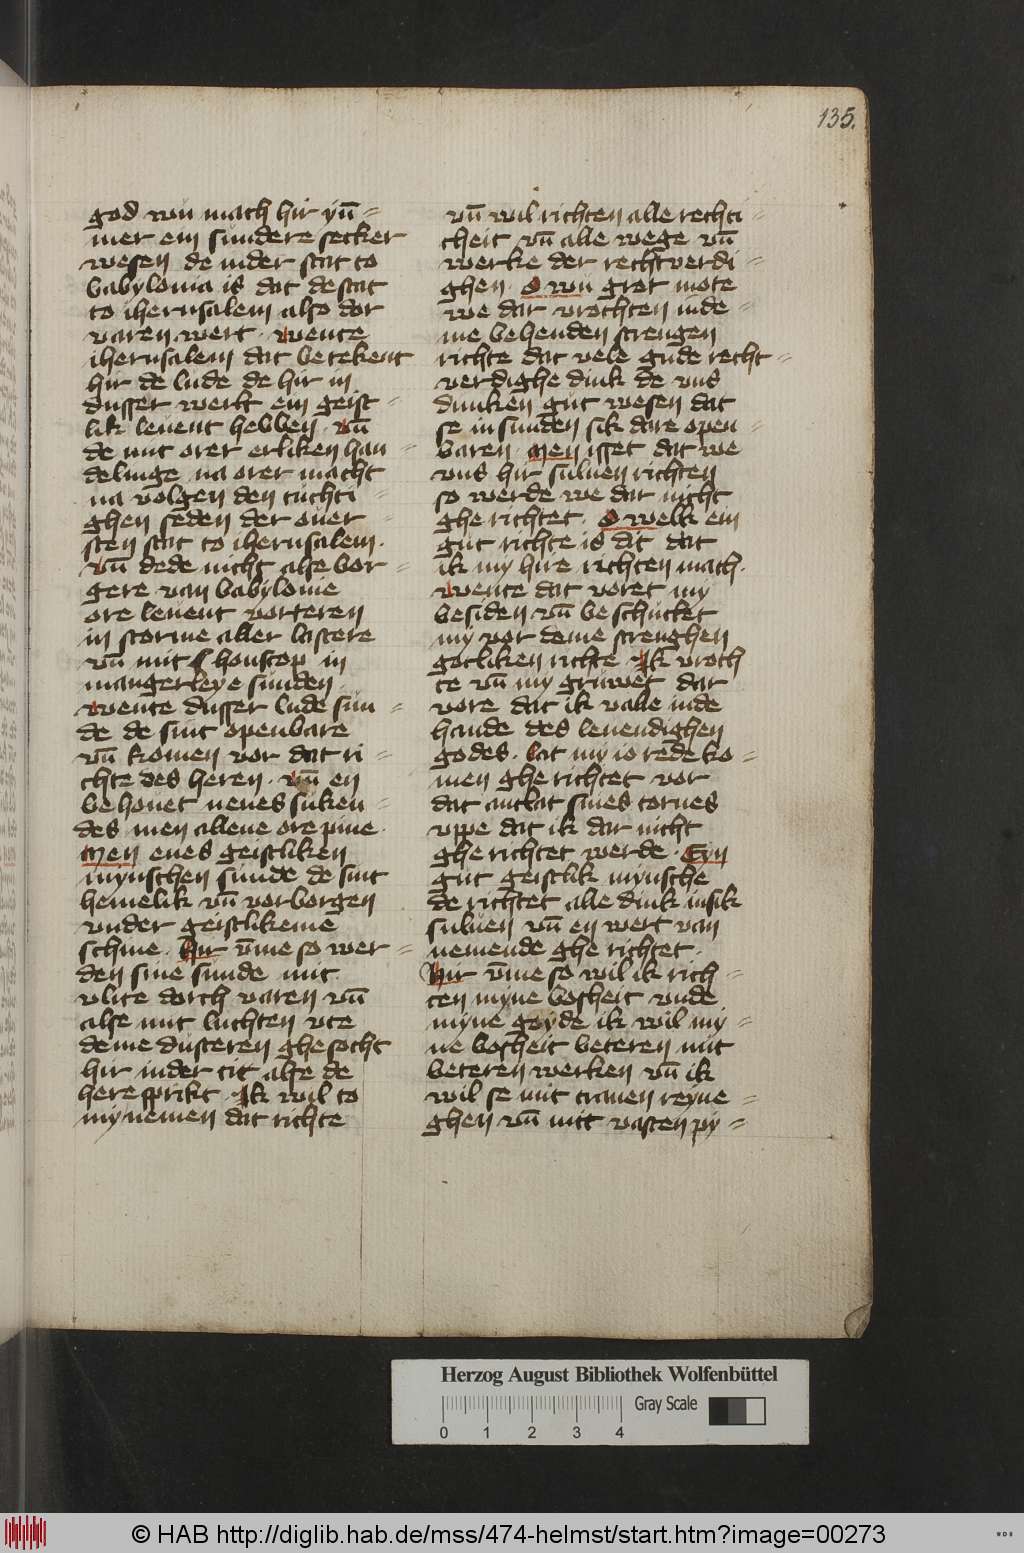 135.
god wu mach hir yū=
mer ein sundere secker
wesen de inder stat to
babylonia is dat de stat
to iherusalem also dor
varen wert · wente
iherusalem dat betekent
hir de lude de hir in
dusser werlt ein geist=
lik leuent hebben · vn̄
de mit orer erliken han=
delinge na orer macht
na volgen den tuchti=
ghen seden der ouer=
sten stat to iherusalem·
vn̄ dede nicht alse bor=
gere van babylonie
ore leuent vorteren
in storme aller lastere
vn̄ mit shonstop in
mangerleye sunden
wente dusser lude sun=
de de sint openbare
vn̄ komen vor dat ri=
chte des heren · vn̄ en
behouet neues suken=
des men allene ore pine·
Men enes geistliken
mynschen sunde de sint
hemelik vn̄ vorborgen
vnder geistlikeme
schine · Hir v̄me so wer=
den sine sunde mit
vlite dorch varen vn̄
alse mit luchten vte
deme dusteren ghesocht
hir inder tit alse de
here sprikt · Ik wil to
my nemen dat richte
vn̄ wil richten alle rechti=
cheit vn̄ alle wege vn̄
werke der rechtverdi=
ghen · O wu grot mote
we dar vrochten inde=
me behenden strengen
richte dat vele gude recht=
verdighe dink de vns
dunken gut wesen dat
se in sunden sik dare open=
baren · Men isset dat we
vns hir suluen richten
so werde we dar nicht
gherichtet · O welk ein
gut richte is dit dat
ik my hire richten mach·
wente dat voret my
besiden vn̄ beschuttet
my vor deme strenghen
gotliken richte Ik vroch
te vn̄ my gruwet dar
vore dat ik valle inde
hande des leuendighen
godes · lat my io rede ko=
men gherichtet vor
dat antlat sines tornes
vppe dat ik dar nicht
gherichtet werde · Eyn
gut geistlik mynsche
de richtet alle dink insik
suluen vn̄ en wert van
nemende gherichtet ·
Hir v̄me so wil ik rich=
ten myne bosheit vnde
myne goyde ik wil my=
ne bosheit beteren mit
beteren werken vn̄ ik
wil se mit tranen reyne=
ghen vn̄ mit vasten py=
Herzog August Bibliothek Wolfenbüttel
Gray Scale
0 1 2 3 4
© HAB http://diglib.hab.de/mss/474-helmst/start.htm?image=00273